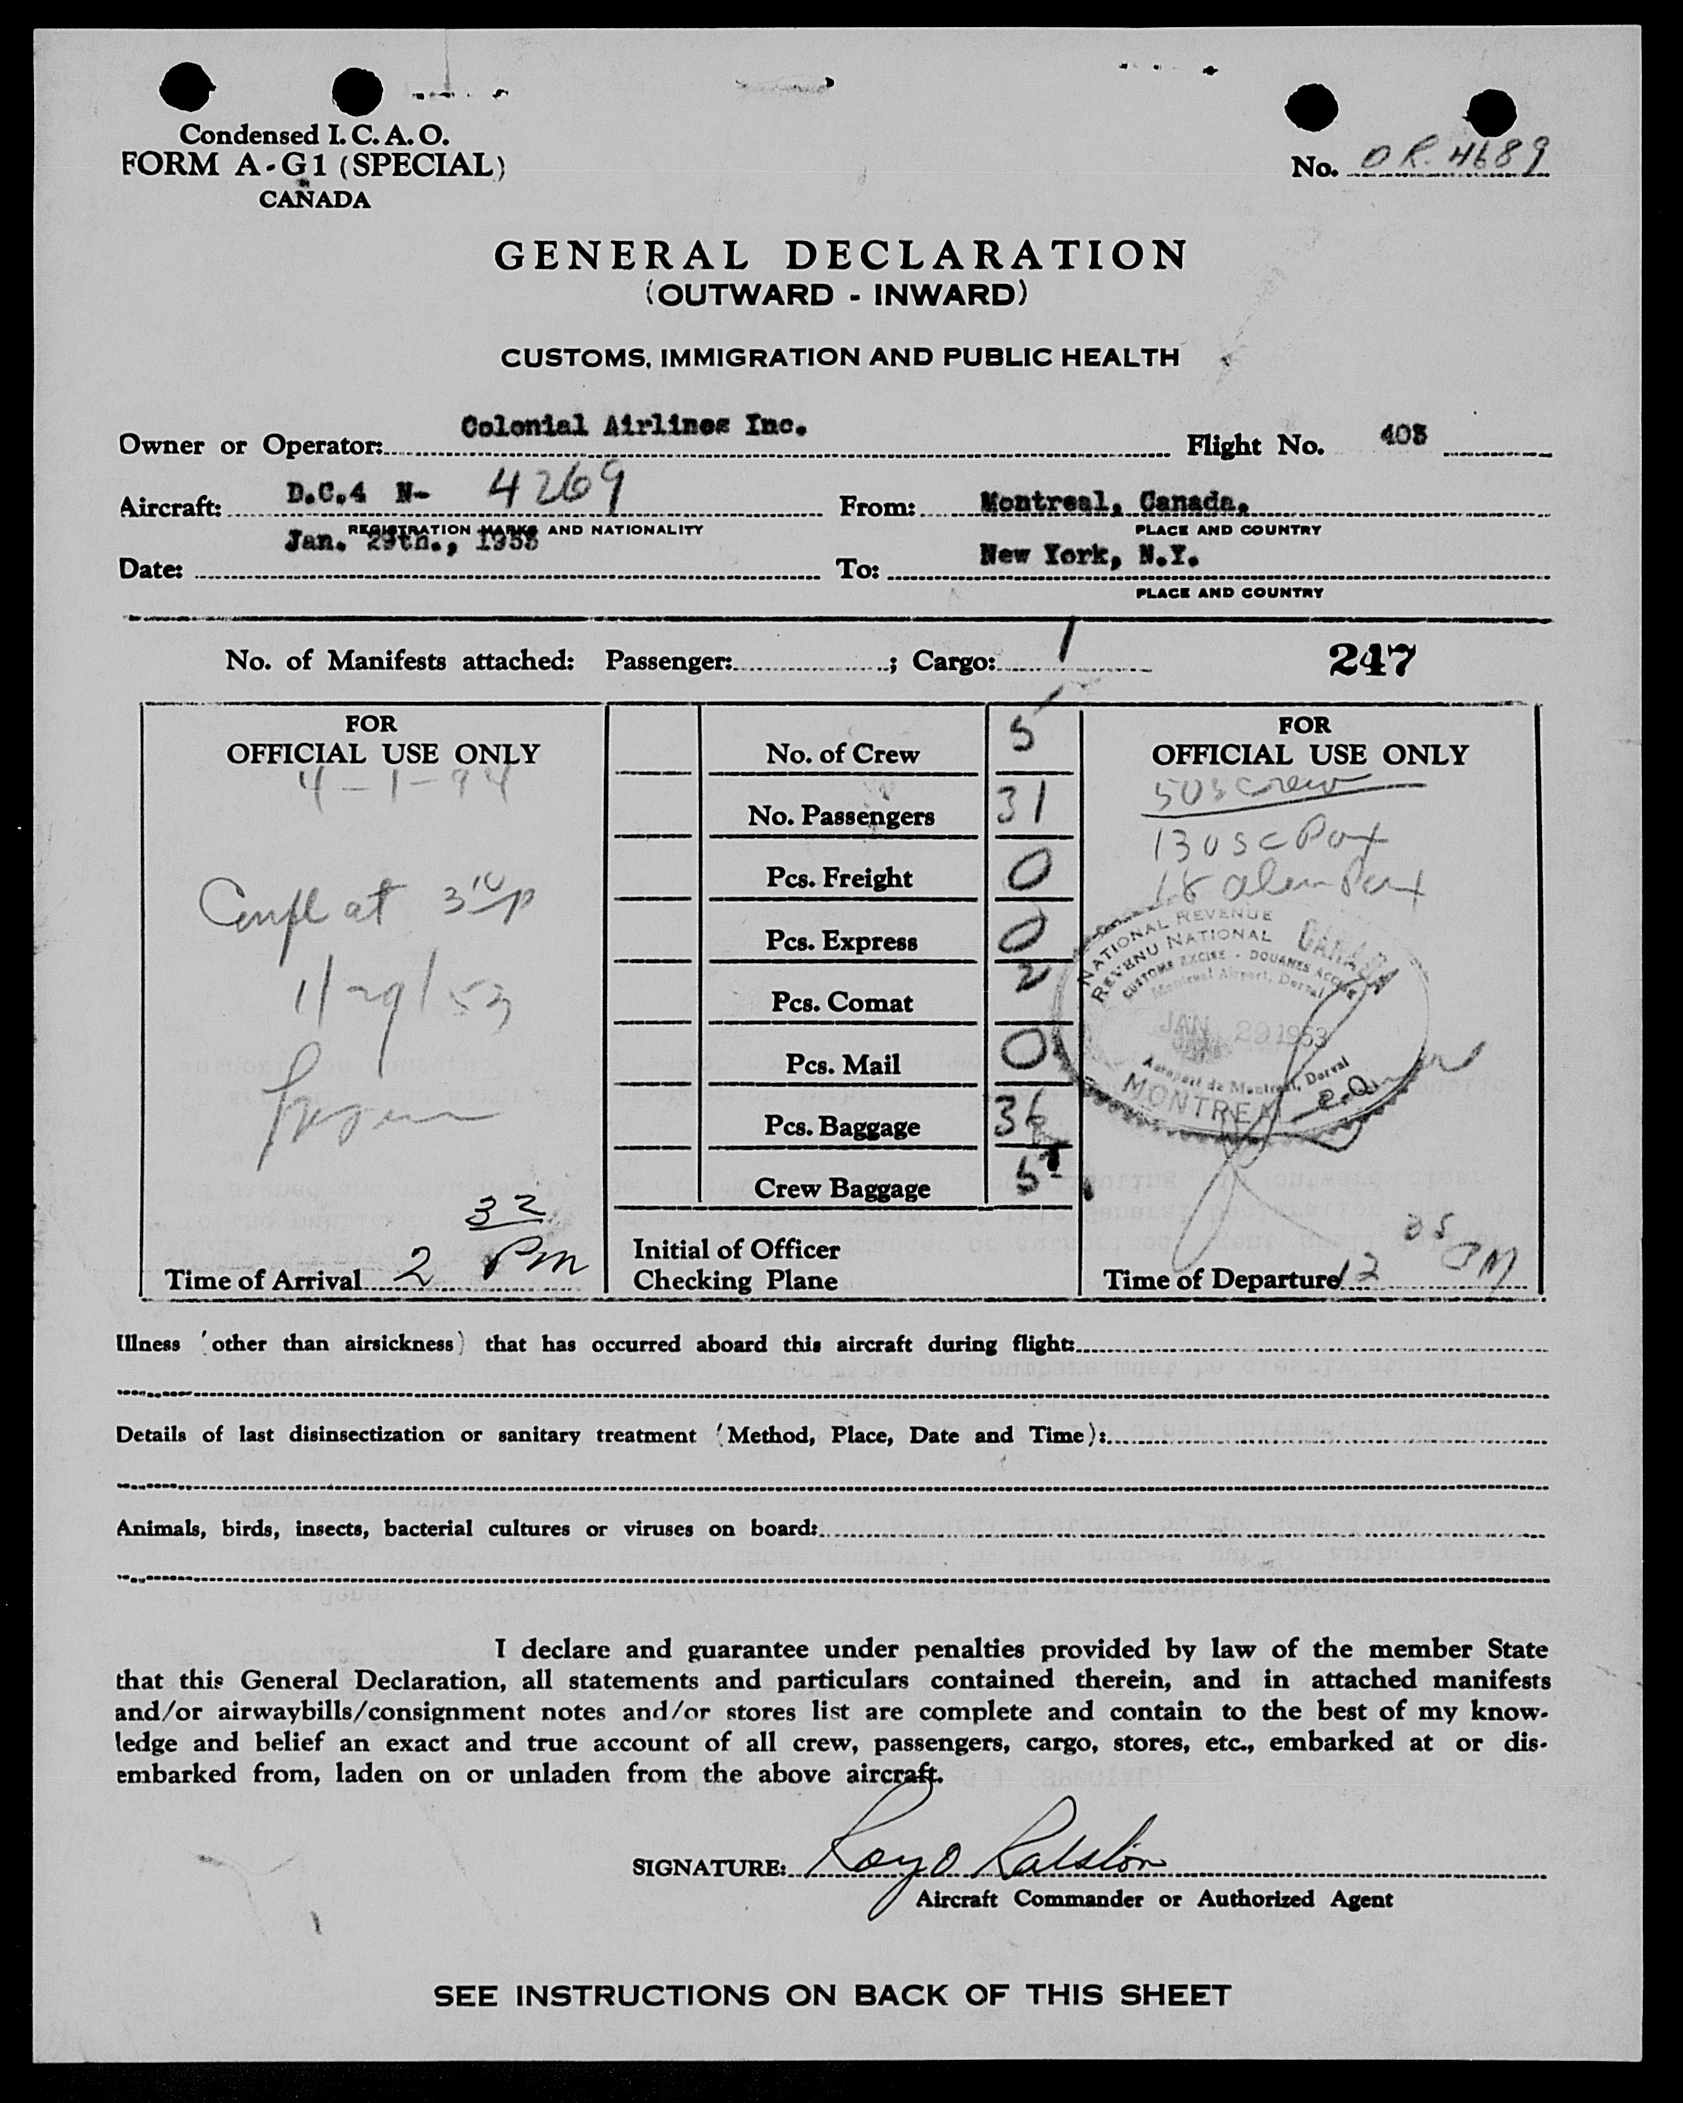 Condensed I.C.A.O.
FORM A-G1 (SPECIAL)
CANADA
No. O R. 4689
GENERAL DECLARATION
(OUTWARD - INWARD)
CUSTOMS, IMMIGRATION AND PUBLIC HEALTH
Owner or Operator: Colonial Airlines Inc. Flight No. 403
Aircraft: D.C.4 N- 4269 From: Montreal, Canada.
REGISTRATION MARKS AND NATIONALITY PLACE AND COUNTRY
Date: Jan. 29th., 1953 To: New York, N.Y.
PLACE AND COUNTRY
No. of Manifests attached: Passenger: ; Cargo: 1 247
FOR
OFFICIAL USE ONLY
4-1-94
Compl at 3 10 p
1/29/53
No. of Crew 5
No. Passengers 31
Pcs. Freight 0
Pcs. Express 0
Pcs. Comat 2
Pcs. Mail 0
Pcs. Baggage 36
Crew Baggage 5
FOR
OFFICIAL USE ONLY
5 US crew
13 USC Pax
18 alien Pax
NATIONAL REVENUE
REVENU NATIONAL
CANADA
CUSTOMS EXCISE - DOUANES ACCISE
Montreal Airport, Dorval
JAN 29 1953
Aeroport de Montreal, Dorval
MONTREAL
Time of Arrival 2 32 Pm
Initial of Officer
Checking Plane
Time of Departure 12 35 PM
Illness (other than airsickness) that has occurred aboard this aircraft during flight:
Details of last disinsectization or sanitary treatment (Method, Place, Date and Time):
Animals, birds, insects, bacterial cultures or viruses on board:
I declare and guarantee under penalties provided by law of the member State
that this General Declaration, all statements and particulars contained therein, and in attached manifests
and/or airwaybills/consignment notes and/or stores list are complete and contain to the best of my know-
ledge and belief an exact and true account of all crew, passengers, cargo, stores, etc., embarked at or dis-
embarked from, laden on or unladen from the above aircraft.
SIGNATURE: Roy O Ralston
Aircraft Commander or Authorized Agent
SEE INSTRUCTIONS ON BACK OF THIS SHEET